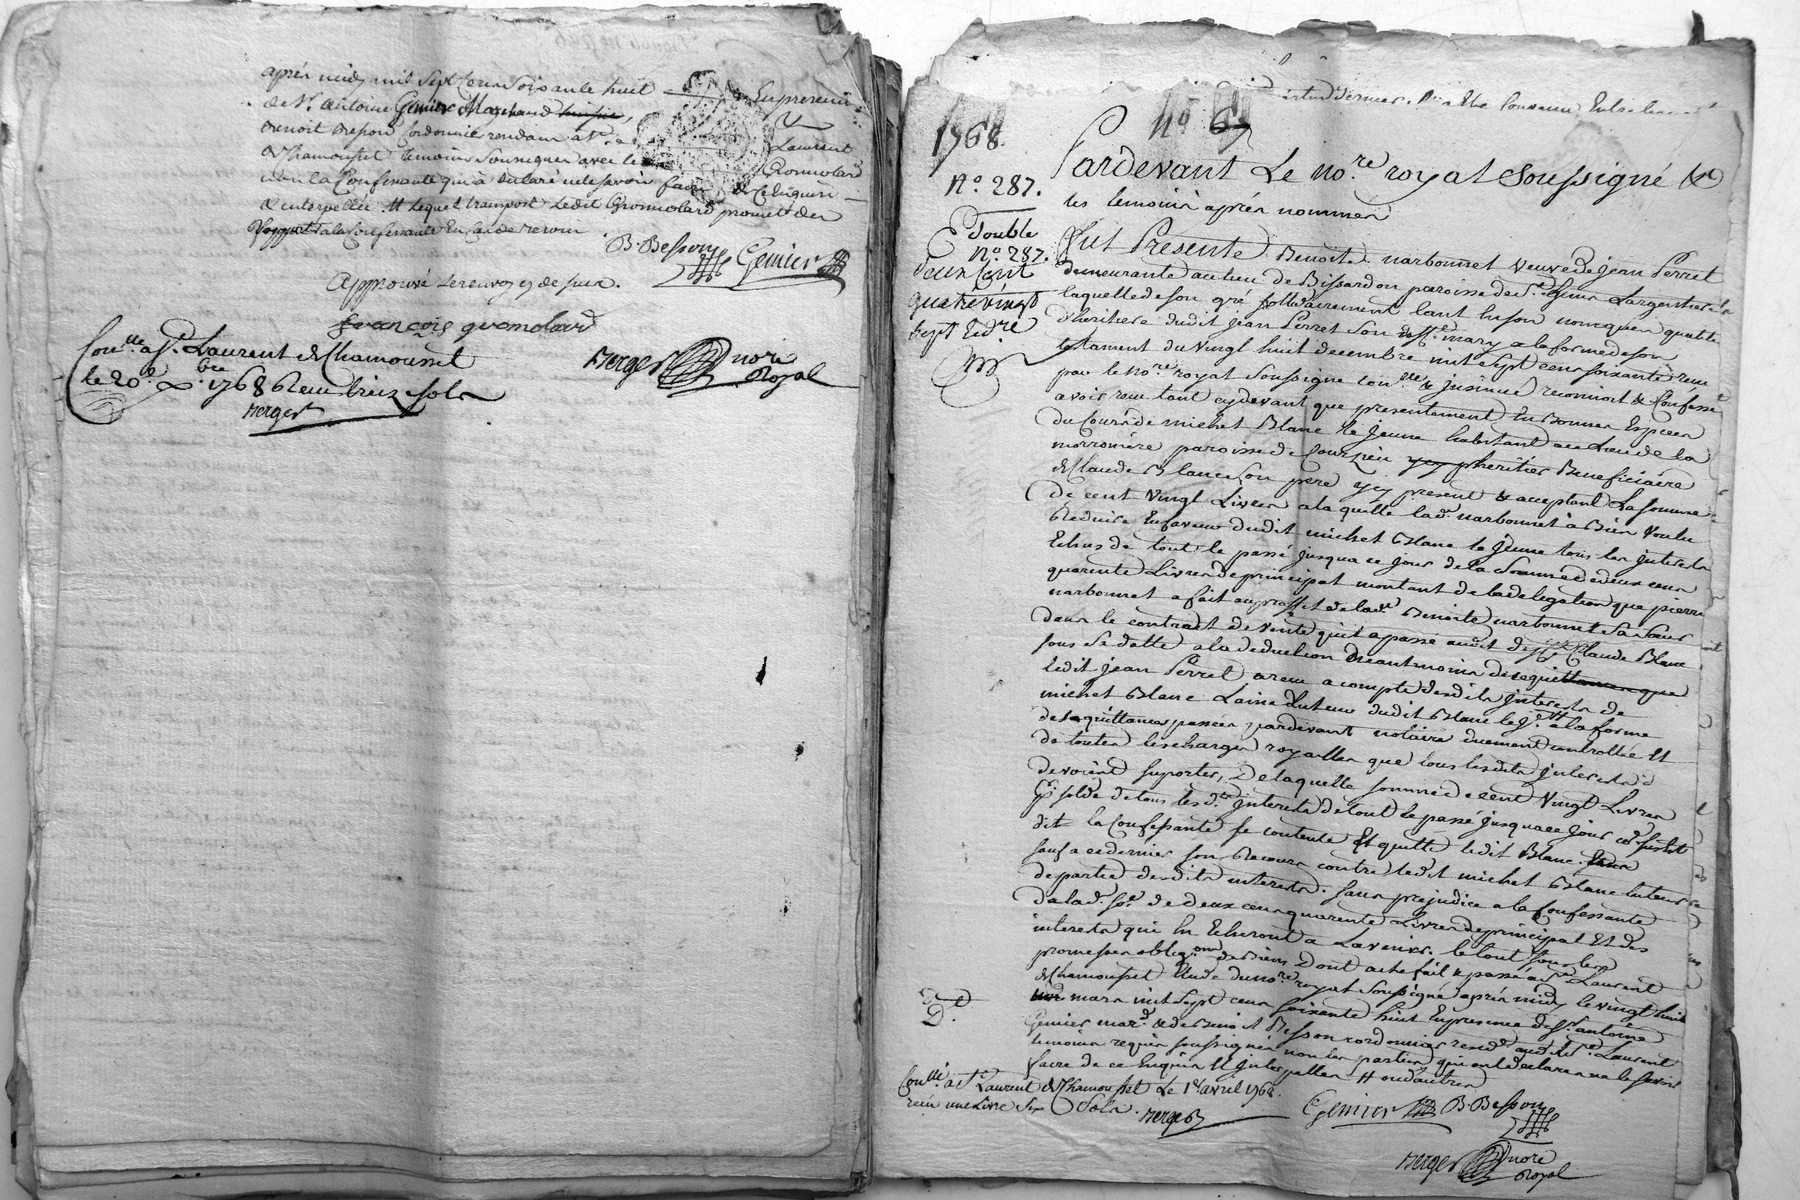 après midy mil sept cens soixante huit En presence
de Sr. Antoine Genier Marchand
Benoit Besson Cordonnier rendant a St. Laurent
de Chamousset temoins soussignes avec led. Gromolard
non la Confessante qui à declaré ne le savoir faire de Ce Enquise
& interpellée. Lequel transport Ledit Gromolard promet
a la Confessante En Cas de
B. Besson Genier
Approuvé le renvoy cy dessus.
françois gromolard
Conlle a St. Laurent de Chamousset
le 20e. bre 1768 Reçu treize sols
Berger
Berger nore
Royal
1768
No. 287.
Double
No. 287.
deux Cent
quatrevingt
sept
No 67
Pardevant Le nore royal soussigné &
les temoins apres nommés
fut Presente Benoite narbonnet veuve de jean Perret
demeurante au lieu de Bissardon paroisse de Ste. Genis Largentiere
laquelle de son gré solidairement tant En son nom qu'en qualité
d'heritiere dudit jean Perret son mary a la forme de son
testament du vingt huit decembre mil sept cens soixante
par le nore royal soussigné Conlle & Jnsinué reconnoit & Confesse
avoir reçu tant cy devant que presentement En bonnes Especes
du Cours de michel Blanc le jeune habitant au Lieu de la
paroisse de heritier Beneficiaire
de Claude Blanc son pere icy present & acceptant La somme
de cent vingt Livres a laquelle lad. narbonnet à Bien voulu
Reduire En faveur dudit michel Blanc le jeune tous les jnterets
Echus de tout le passé jusqua ce jour de la somme de deux cens
quarente Livres de principal montant de la delegation que pierre
narbonnet a fait au proffit de lad. Benoite narbonnet sa sœur
dans le contract de vente qu'il a passé audit Claude Blanc
sous sa datte a la deduction Neantmoins de ce que
Ledit jean Perret a reçu a compte desdits jnterets de
michel Blanc Lainé tuteur dudit Blanc le je. a la forme
des quittances passées pardevant notaire duement Controllée Et
de toutes les charges royalles que tous lesdits jnterets
devoient suporter, De laquelle somme de cent Vingt Livres
Et solde de tous les ds. jnterets de tout le passé jusqua ce jour
dit la Confessante se contente Et quitte ledit Blanc.
sauf a ce dernier son Recours contre ledit michel Blanc tuteur
de partie desdits interets. sans prejudice a la Confessante
de lad. se. de deux cens quarente Livres de principal Et des
interets qui En Echeront a Lavenir. le tout sous les
promesses obligons. des biens Dont acte fait & passé a St. Laurent
de Chamousset Etude du nore royal soussigné après midy le vingt huit
mars mil sept cens soixante huit En presence de Sr. Antoine
Genier mard. & de Benoit Besson cordonnier rendt. audit St. Laurent
temoins requis soussignés non les parties qui ont declaré ne le savoir
faire de ce Enquis Et jnterpellés
Conlle a St. Laurent de Chamousset Le 1er avril 1768.
reçu une Livre six sols. Berger
Genier B. Besson
Berger nore
Royal